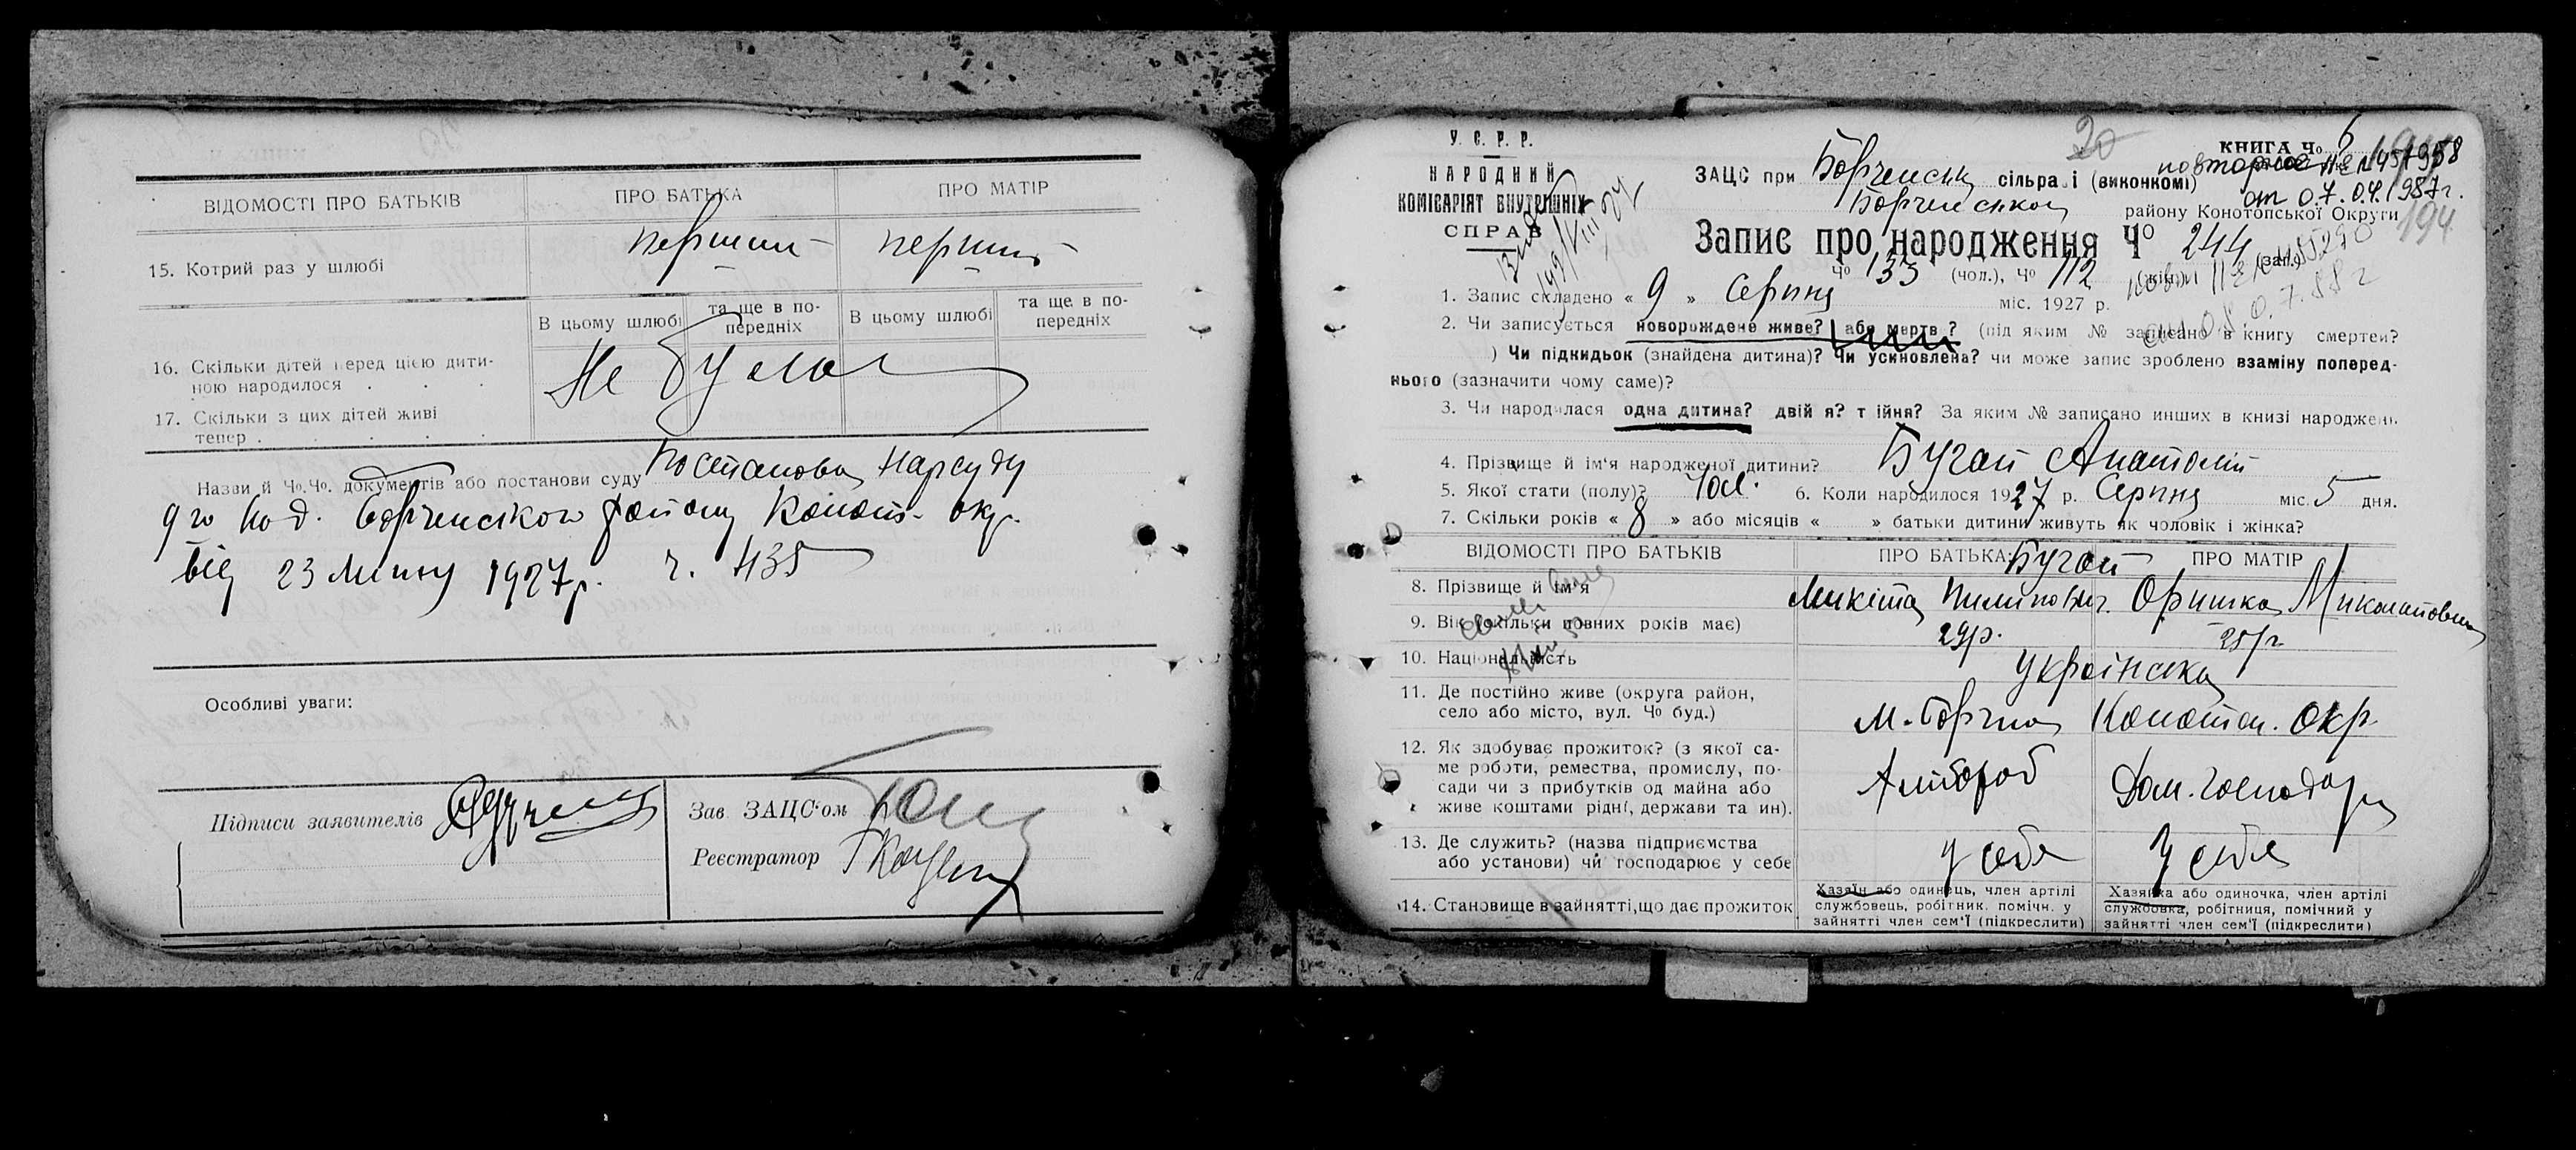 ВІДОМОСТІ ПРО БАТЬКІВ
ПРО БАТЬКА
ПРО МАТІР
15. Котрий раз у шлюбі
перший
перший
В цьому шлюбі
та ще в по-
передніх
В цьому шлюбі
та ще в по-
передніх
16. Скільки дітей перед цією дити-
ною народилося . . .
17. Скільки з цих дітей живі
тепер . . . . .
Не було
Назви й Ч°.Ч°. документів або постанови суду Постанова Нарсуду
9го Борченського району Конот. окр.
від 23 Липня 1927р. ч. 435
Особливі уваги:
Підписи заявителів
Зав. ЗАЦС'ом
Реєстратор
У. С. Р. Р.
НАРОДНИЙ
КОМІСАРІЯТ ВНУТРІШНІХ
СПРАВ
20
КНИГА Ч° 6
ЗАЦС при Борченськ сільраді (виконкомі)
от 07.04.1987г.
Борченського району Конотопської Округи
194
Запис про народження Ч° 244 (заг.)
Ч° 133 (чол.), Ч° 112 (жін.)
1. Запис складено « 9 » Серпня міс. 1927 р.
2. Чи записується новорождене живе? або мертве? (під яким № записано в книгу смертей?
) Чи підкидьок (знайдена дитина)? Чи усиновлена? чи може запис зроблено взаміну поперед-
нього (зазначити чому саме)?
3. Чи народилася одна дитина? двійня? трійня? За яким № записано инших в книзі народжень
4. Прізвище й ім'я народженої дитини? Бугай Анатолій
5. Якої стати (полу)? Чол. 6. Коли народилося 1927 р. Серпня міс. 5 дня.
7. Скільки років « 8 » або місяців « » батьки дитини живуть як чоловік і жінка?
ВІДОМОСТІ ПРО БАТЬКІВ
ПРО БАТЬКА
ПРО МАТІР
Бугай
8. Прізвище й ім'я
Микіта Пилипович. Оришка Миколаївна
9. Вік (скільки повних років має)
29р.
25р.
10. Національність
Українська
11. Де постійно живе (округа район,
село або місто, вул. Ч° буд.)
м. Борзна Конотоп. Окр.
12. Як здобуває прожиток? (з якої са-
ме роботи, ремества, промислу, по-
сади чи з прибутків од майна або
живе коштами рідні, держави та ин).
Хлібороб
Дом. господар
13. Де служить? (назва підприємства
або установи) чи господарює у себе
у себе
у себе
14. Становище в зайнятті, що дає прожиток
Хазяїн або одинець, член артілі
службовець, робітник. помічн. у
зайнятті член сем'ї (підкреслити)
Хазяйка або одиночка, член артілі
службовка, робітниця, помічний у
зайнятті член сем'ї (підкреслити)